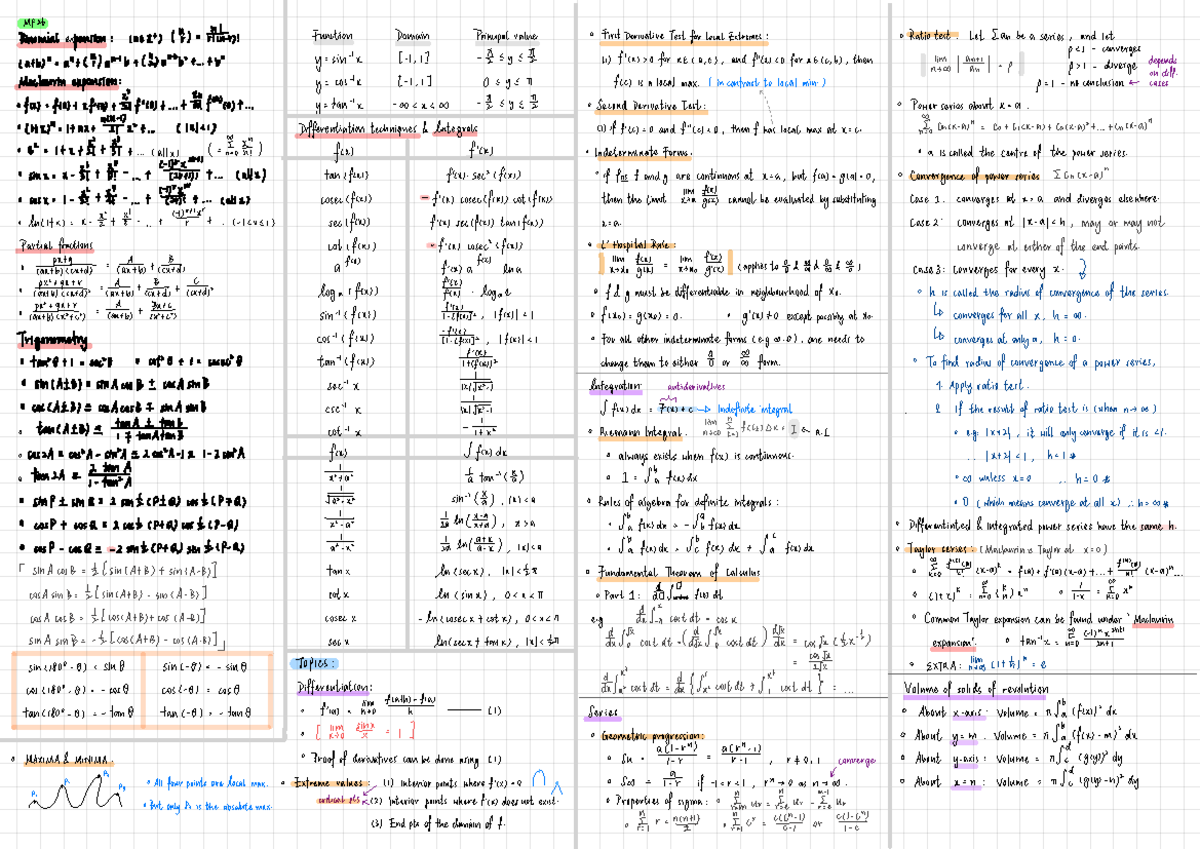 MF26
Binomial expansion: (n∈Z⁺) (n r) = n!/r!(n-r)!
(a+b)ⁿ = aⁿ + (n 1) aⁿ⁻¹b + (n 2) aⁿ⁻²b² + ... + bⁿ
Maclaurin expansion:
• f(x) = f(0) + x f'(0) + x²/2! f''(0) + ... + xⁿ/n! f⁽ⁿ⁾(0) + ...
• (1+x)ⁿ = 1 + nx + n(n-1)/2! x² + ... (|x|<1)
• eˣ = 1 + x + x²/2! + x³/3! + ... (all x)
• sin x = x - x³/3! + x⁵/5! - ... + (-1)ʳ x²ʳ⁺¹/(2r+1)! + ... (all x)
• cos x = 1 - x²/2! + x⁴/4! - ... + ... (all x)
• ln(1+x) = x - x²/2 + x³/3 - ... + (-1)ʳ⁺¹ xʳ/r + ... (-1<x≤1)
Partial fractions
• px+q/(ax+b)(cx+d) = A/(ax+b) + B/(cx+d)
• px²+qx+r/(ax+b)(cx+d)² = A/(ax+b) + B/(cx+d) + C/(cx+d)²
• px²+qx+r/(ax+b)(x²+c²) = A/(ax+b) + Bx+C/(x²+c²)
Trigonometry
• tan²θ + 1 = sec²θ • cot²θ + 1 = cosec²θ
• sin(A±B) ≡ sin A cos B ± cos A sin B
• cos(A±B) ≡ cos A cos B ∓ sin A sin B
• tan(A±B) ≡ tan A ± tan B/1 ∓ tan A tan B
• cos 2A ≡ cos²A - sin²A ≡ 2cos²A - 1 ≡ 1 - 2sin²A
• tan 2A ≡ 2 tan A/1 - tan²A
• sin P ± sin Q ≡ 2 sin ½(P±Q) cos ½(P∓Q)
• cos P + cos Q ≡ 2 cos ½(P+Q) cos ½(P-Q)
• cos P - cos Q ≡ -2 sin ½(P+Q) sin ½(P-Q)
sin A cos B = ½[sin(A+B) + sin(A-B)]
cos A sin B = ½[sin(A+B) - sin(A-B)]
cos A cos B = ½[cos(A+B) + cos(A-B)]
sin A sin B = -½[cos(A+B) - cos(A-B)]
sin(180° - θ) = sin θ sin(-θ) = - sin θ
cos(180° - θ) = - cos θ cos(-θ) = cos θ
tan(180° - θ) = - tan θ tan(-θ) = - tan θ
• MAXIMA & MINIMA.
• All four points are local max.
• But only P₃ is the absolute max.
Function Domain Principal value
y = sin⁻¹ x [-1, 1] -π/2 ≤ y ≤ π/2
y = cos⁻¹ x [-1, 1] 0 ≤ y ≤ π
y = tan⁻¹ x -∞ < x < ∞ -π/2 ≤ y ≤ π/2
Differentiation techniques & Integrals
f(x) f'(x)
tan(f(x)) f'(x) · sec²(f(x))
cosec(f(x)) - f'(x) cosec(f(x)) cot(f(x))
sec(f(x)) f'(x) sec(f(x)) tan(f(x))
cot(f(x)) - f'(x) cosec²(f(x))
a^f(x) f'(x) a^f(x) ln a
logₐ(f(x)) f'(x)/f(x) · logₐ e
sin⁻¹(f(x)) f'(x)/√1-[f(x)]², |f(x)| < 1
cos⁻¹(f(x)) -f'(x)/√1-[f(x)]², |f(x)| < 1
tan⁻¹(f(x)) f'(x)/1+(f(x))²
sec⁻¹ x 1/|x|√x²-1
csc⁻¹ x 1/|x|√x²-1
cot⁻¹ x - 1/1+x²
f(x) ∫ f(x) dx
1/x²+a² 1/a tan⁻¹(x/a)
1/√a²-x² sin⁻¹(x/a), |x| < a
1/x²-a² 1/2a ln(x-a/x+a), x > a
1/a²-x² 1/2a ln(a+x/a-x), |x| < a
tan x ln(sec x), |x| < ½π
cot x ln(sin x), 0 < x < π
cosec x - ln(cosec x + cot x), 0 < x < π
sec x ln(sec x + tan x), |x| < ½π
Topics:
Differentiation:
• f'(x) = lim h→0 f(x+h) - f(x)/h —— (1)
• [lim x→0 sin x/x = 1]
• Proof of derivatives can be done using (1)
• Extreme values: (1) Interior points where f'(x) = 0
critical pts (2) Interior points where f'(x) does not exist.
(3) End pts of the domain of f.
• First Derivative Test for Local Extremes:
(1) f'(x) > 0 for x∈(a,c), and f'(x) < 0 for x∈(c,b), then
f(c) is a local max. (in contrast to local min)
• Second Derivative Test:
(1) if f'(c) = 0 and f''(c) < 0, then f has local max at x = c.
• Indeterminate Forms.
• If fns f and g are continuous at x = a, but f(a) = g(a) = 0,
then the limit lim x→a f(x)/g(x) cannot be evaluated by substituting
x = a.
• L'Hospital Rule:
lim x→x₀ f(x)/g(x) = lim x→x₀ f'(x)/g'(x) (applies to
• f & g must be differentiable in neighbourhood of x₀.
• f(x₀) = g(x₀) = 0. • g'(x) ≠ 0 except possibly at x₀.
• For all other indeterminate forms (e.g ∞·0), one needs to
change them to either 0/0 or ∞/∞ form.
Integration: antiderivatives
∫ f(x) dx = F(x) + c → Indefinite integral
• Riemann Integral. lim n→∞ Σ f(cₖ) Δx = I ← R.I
• always exists when f(x) is continuous.
• I = ∫ₐᵇ f(x) dx
• Rules of algebra for definite integrals:
• ∫ₐᵇ f(x) dx = - ∫ᵇₐ f(x) dx
• ∫ₐᵇ f(x) dx = ∫ f(x) dx + ∫ f(x) dx
• Fundamental Theorem of Calculus
• Part 1: f(t) dt
e.g d/dx ∫ cos t dt = cos x
d/dx ∫₀^√x cos t dt = (d/d√x ∫₀^√x cos t dt) d√x/dx = cos √x (½x^-½)
= cos √x/2√x
d/dx ∫ cos t dt = d/dx { ∫ cos t dt + ∫ cos t dt } = ...
Series
• Geometric progression:
• Sn = a(1-rⁿ)/1-r = a(rⁿ-1)/r-1, r ≠ 0, 1 converge
• S∞ = a/1-r if -1<r<1, rⁿ → 0 as n → ∞
• Properties of sigma:
• Σ r = n(n+1)/2
• Ratio test: Let Σ an be a series, and let
ρ < 1 - converges
lim n→∞ |aₙ₊₁/aₙ| = ρ ρ > 1 - diverge depends on diff. cases
ρ = 1 - no conclusion ←
• Power series about x = a.
Σ cₙ(x-a)ⁿ = c₀ + c₁(x-a) + c₂(x-a)² + ... + cₙ(x-a)ⁿ
• a is called the centre of the power series.
• Convergence of power series Σ cₙ(x-a)ⁿ
Case 1: converges at x = a and diverges elsewhere.
Case 2: converges at |x-a| < h, may or may not
converge at either of the end points.
Case 3: Converges for every x.
• h is called the radius of convergence of the series.
↳ converges for all x, h = ∞.
↳ converges at only a, h = 0.
• To find radius of convergence of a power series,
1. Apply ratio test.
2. If the result of ratio test is (when n→∞)
• e.g. |x+2|, it will only converge if it is <1.
∴ |x+2| < 1, h = 1
• ∞ unless x = 0 ∴ h = 0
• 0 (which means converge at all x) ∴ h = ∞
• Differentiated & Integrated power series have the same h.
• Taylor series: (Maclaurin is Taylor at x = 0)
• Σ f⁽ⁿ⁾(a)/n! (x-a)ⁿ = f(a) + f'(a)(x-a) + ... + f⁽ⁿ⁾(a)/n! (x-a)ⁿ ...
• (1+x)ᵏ = Σ (k n) xⁿ • 1/1-x = Σ xᵏ
• Common Taylor expansion can be found under "Maclaurin
expansion". • tan⁻¹x = Σ (-1)ⁿ x²ⁿ⁺¹/2n+1
• EXTRA: lim n→∞ (1+1/n)ⁿ = e
Volume of solids of revolution
• About x-axis: Volume = π∫ₐᵇ (f(x))² dx
• About y=m: Volume = π∫ₐᵇ (f(x)-m)² dx
• About y-axis: Volume = π∫ (g(y))² dy
• About x=n: Volume = π∫ (g(y)-n)² dy